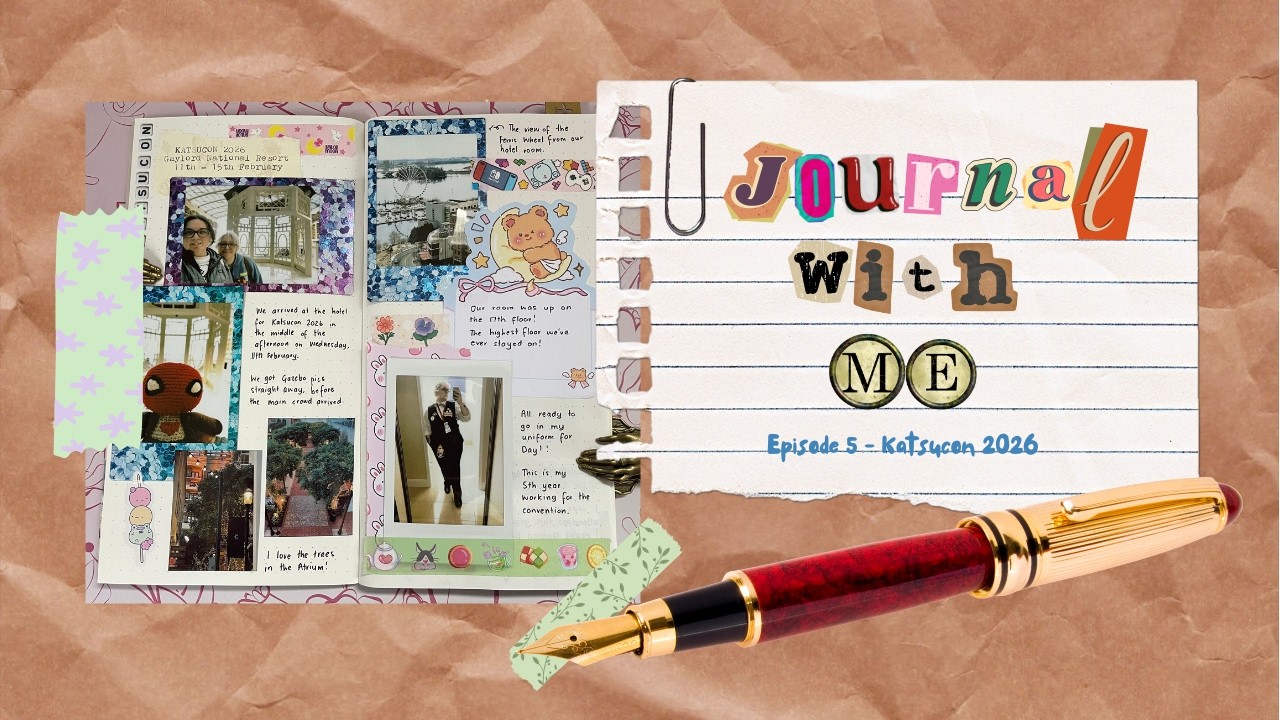 SUCON
KATSUCON 2026
Gaylord National Resort
11th - 15th February
We arrived at the hotel
for Katsucon 2026 in
the middle of the
afternoon on Wednesday,
11th February.
We got Gazebo pics
straight away, before
the main crowd arrived.
I love the trees
in the Atrium!
The view of the
Ferris Wheel from our
hotel room.
Our room was up on
the 17th floor!
The highest floor we've
ever stayed on!
All ready to
go in my
uniform for
Day 1!
This is my
5th year
working for the
convention.
Journal
With
ME
Episode 5 - Katsucon 2026